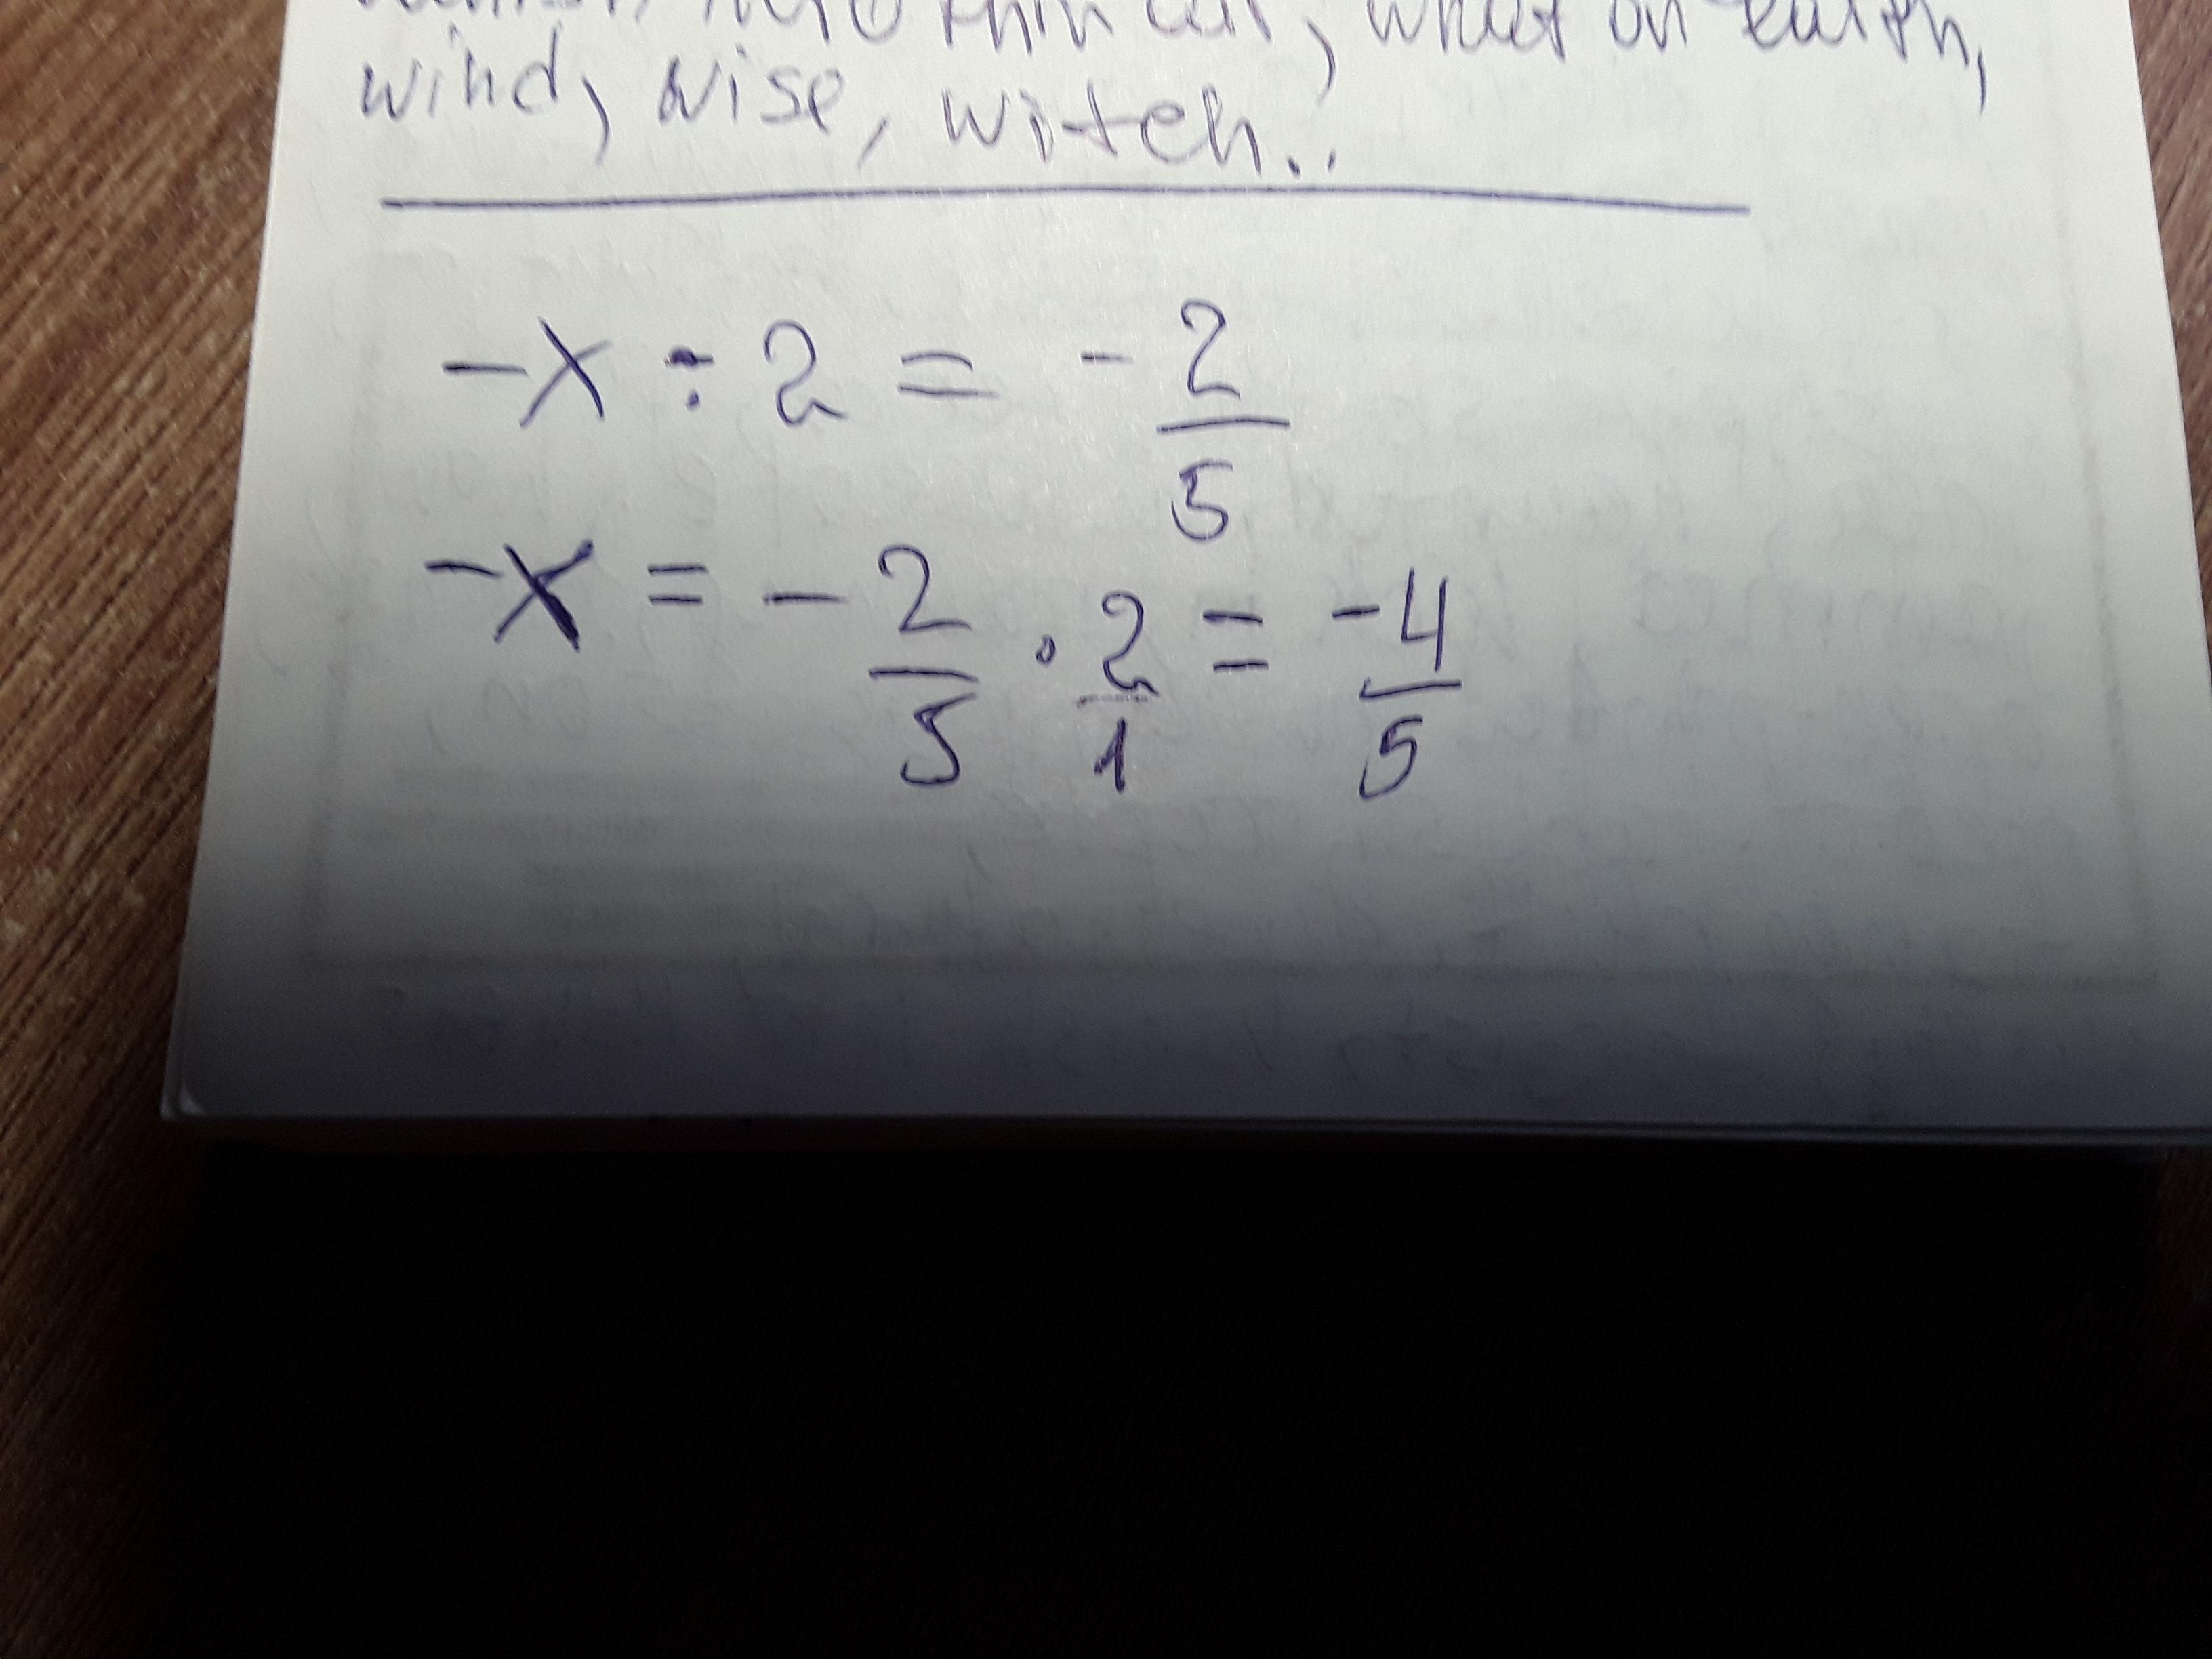 thin air, what on earth,
wind, wise, witch..
-x ÷ 2 = -2/5
-x = -2/5 · 2/1 = -4/5